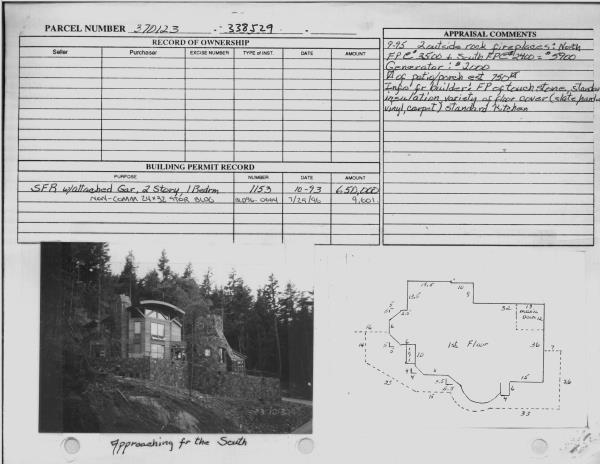 PARCEL NUMBER 370123 . 338529 .
RECORD OF OWNERSHIP
Seller Purchaser EXCISE NUMBER TYPE of INST. DATE AMOUNT
BUILDING PERMIT RECORD
PURPOSE NUMBER DATE AMOUNT
SFR w/attached Gar, 2 Story, 1 Bedrm 1153 10-93 650,000
NON-COMM 24x32 STOR BLDG BLD96-0444 7/29/96 9,601.
APPRAISAL COMMENTS
9-95 2 outside rock fireplaces: North
FP @ 3500 + South FP @ 2400 = $5900
Generator: $2000
# of patio/porch est 750
Info fr builder: FP of touch stone, standard
insulation, variety of floor cover (slate, hardwd
vinyl, carpet) standard Kitchen
Approaching fr the South
13.5
10
9
32
13
12
1st Floor
36
7
26
15
33
16
10
6
25
15